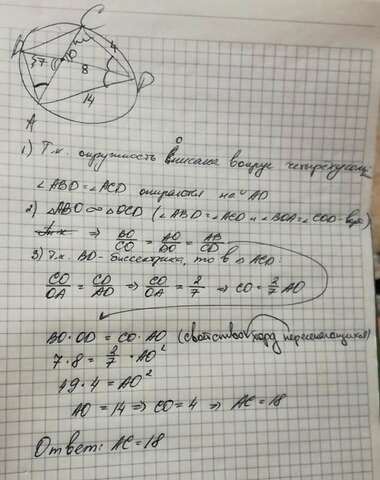 C
B
4
7
O
8
D
14
A
1) Т.к. окружность описана вокруг
∠ABD=∠ACD опираются на ◡AD
2) △ABO ∞ △OCD (∠ABD=∠ACD и ∠BOA=∠COD-верт)
⇒ BO/CO = AO/DO = AB/CD
3) Т.к. BD-биссектриса, то в △ACD:
CO/OA = CD/AD ⇒ CO/OA = 2/7 ⇒ CO = 2/7 AO
BO·OD = CO·AO (свойство хорд пересекающихся)
7·8 = 2/7·AO²
49·4 = AO²
AO = 14 ⇒ CO = 4 ⇒ AC = 18
Ответ: AC = 18